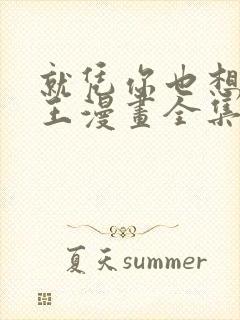 就凭你也想
王漫畫全集
夏天summer